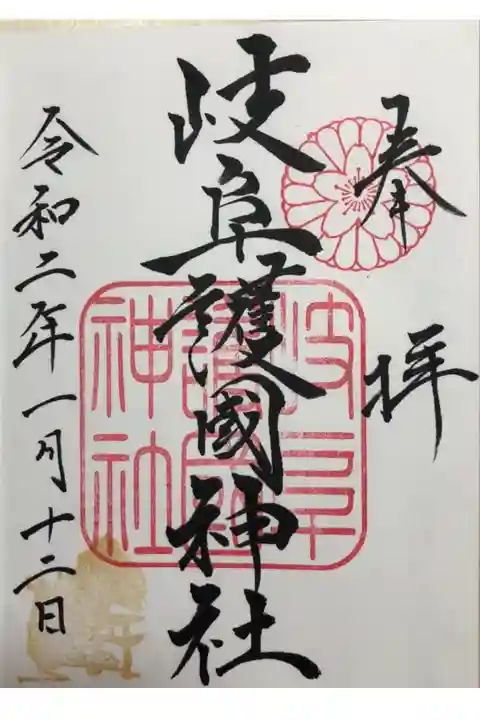 奉拝
岐阜護國神社
岐阜護國神社
令和二年一月十二日